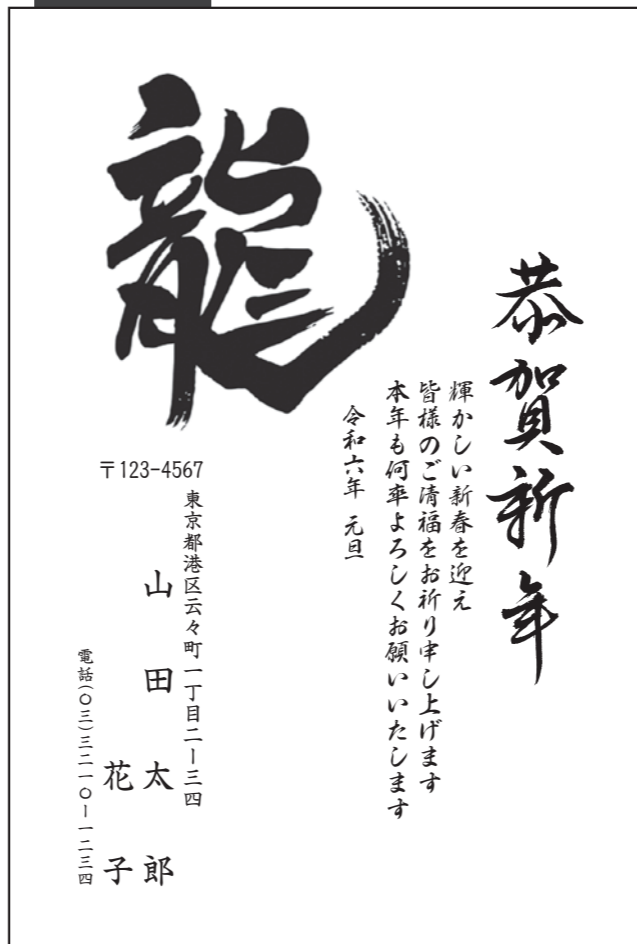 恭賀祈年
輝かしい新春を迎え
皆様のご清福をお祈り申し上げます
本年も何卒よろしくお願いいたします
令和六年 元旦
龍
〒123-4567
東京都港区云々町一丁目二ー三四
山田太郎
花子
電話(〇三)三二一〇ー一二三四